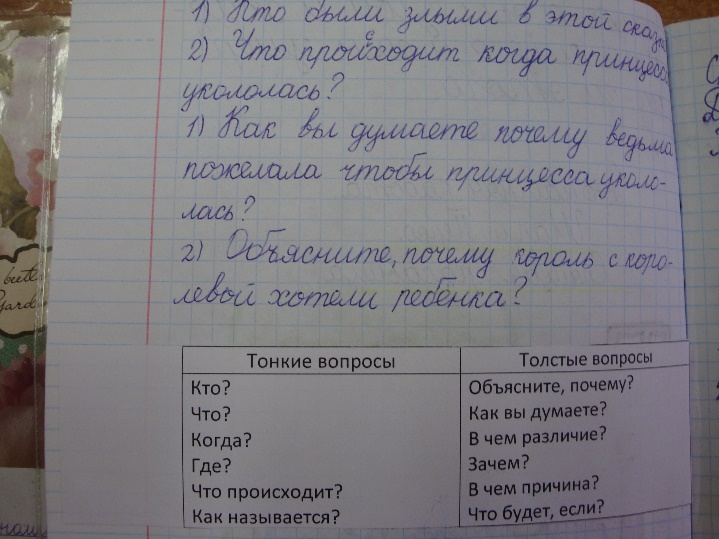 1) Кто были злыми в этой сказке
2) Что происходит когда принцесса
укололась?
1) Как вы думаете почему ведьма
пожелала чтобы принцесса уколо-
лась?
2) Объясните, почему король с коро-
левой хотели ребенка?
Тонкие вопросы	Толстые вопросы
Кто?	Объясните, почему?
Что?	Как вы думаете?
Когда?	В чем различие?
Где?	Зачем?
Что происходит?	В чем причина?
Как называется?	Что будет, если?